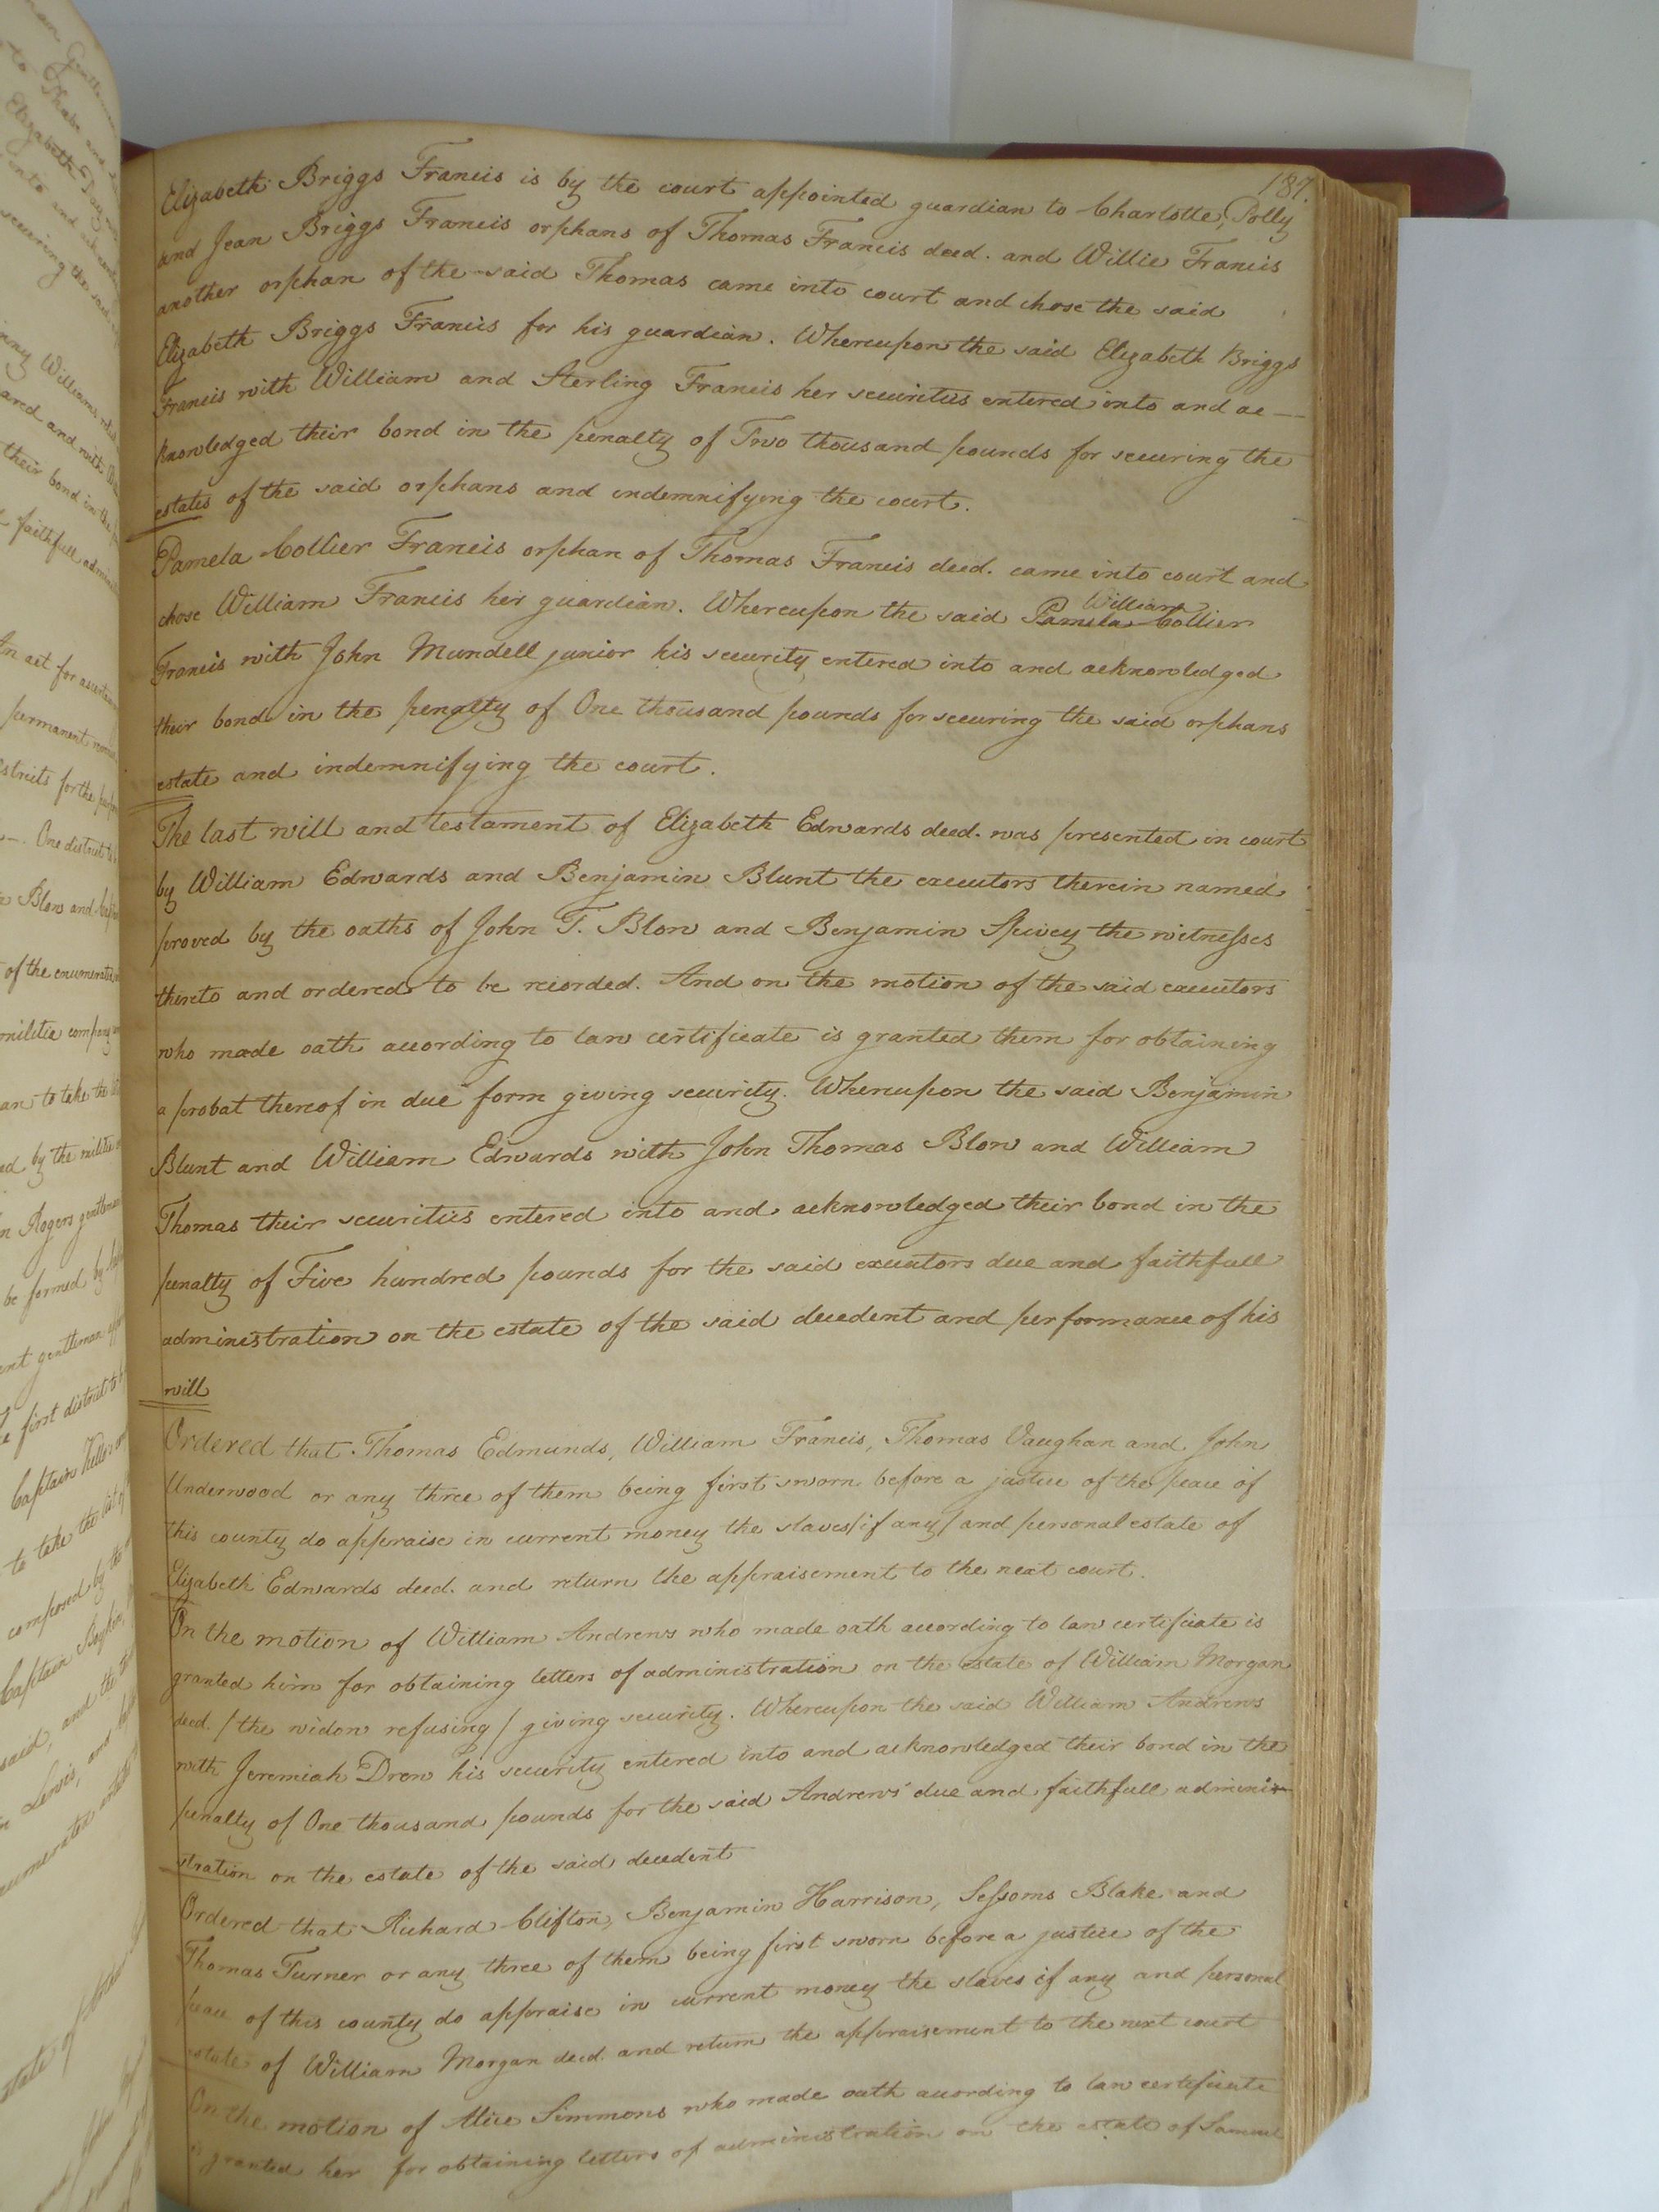 187.
Elizabeth Briggs Francis is by the court appointed guardian to Charlotte, Polly
and Jean Briggs Francis orphans of Thomas Francis decd. and Willie Francis
another orphan of the said Thomas came into court and chose the said
Elizabeth Briggs Francis for his guardian. Whereupon the said Elizabeth Briggs
Francis with William and Sterling Francis her securities entered into and ac-
knowledged their bond in the penalty of Two thousand pounds for securing the
estates of the said orphans and indemnifying the court.
Pamela Collier Francis orphan of Thomas Francis decd. came into court and
chose William Francis her guardian. Whereupon the said Pamela Collier
William
Francis with John Mundell junior his security entered into and acknowledged
their bond in the penalty of One thousand pounds for securing the said orphans
estate and indemnifying the court.
The last will and testament of Elizabeth Edwards decd. was presented in court
by William Edwards and Benjamin Blunt the executors therein named
proved by the oaths of John T. Blow and Benjamin Spivey the witnesses
thereto and ordered to be recorded. And on the motion of the said executors
who made oath according to law certificate is granted them for obtaining
a probat thereof in due form giving security. Whereupon the said Benjamin
Blunt and William Edwards with John Thomas Blow and William
Thomas their securities entered into and acknowledged their bond in the
penalty of Five hundred pounds for the said executors due and faithfull
administration on the estate of the said decedent and performance of his
will
Ordered that Thomas Edmunds, William Francis, Thomas Vaughan and John
Underwood or any three of them being first sworn before a justice of the peace of
this county do appraise in current money the slaves/if any/and personal estate of
Elizabeth Edwards decd. and return the appraisement to the next court.
On the motion of William Andrews who made oath according to law certificate is
granted him for obtaining letters of administration on the estate of William Morgan
decd. /the widow refusing/ giving security. Whereupon the said William Andrews
with Jeremiah Drew his security entered into and acknowledged their bond in the
penalty of One thousand pounds for the said Andrews' due and faithfull admini-
stration on the estate of the said decedent
Ordered that Richard Clifton, Benjamin Harrison, Sessoms Blake and
Thomas Turner or any three of them being first sworn before a justice of the
peace of this county do appraise in current money the slaves if any and personal
estate of William Morgan decd. and return the appraisement to the next court
On the motion of Alice Simmons who made oath according to law certificate
is granted her for obtaining letters of administration on the estate of Samuel